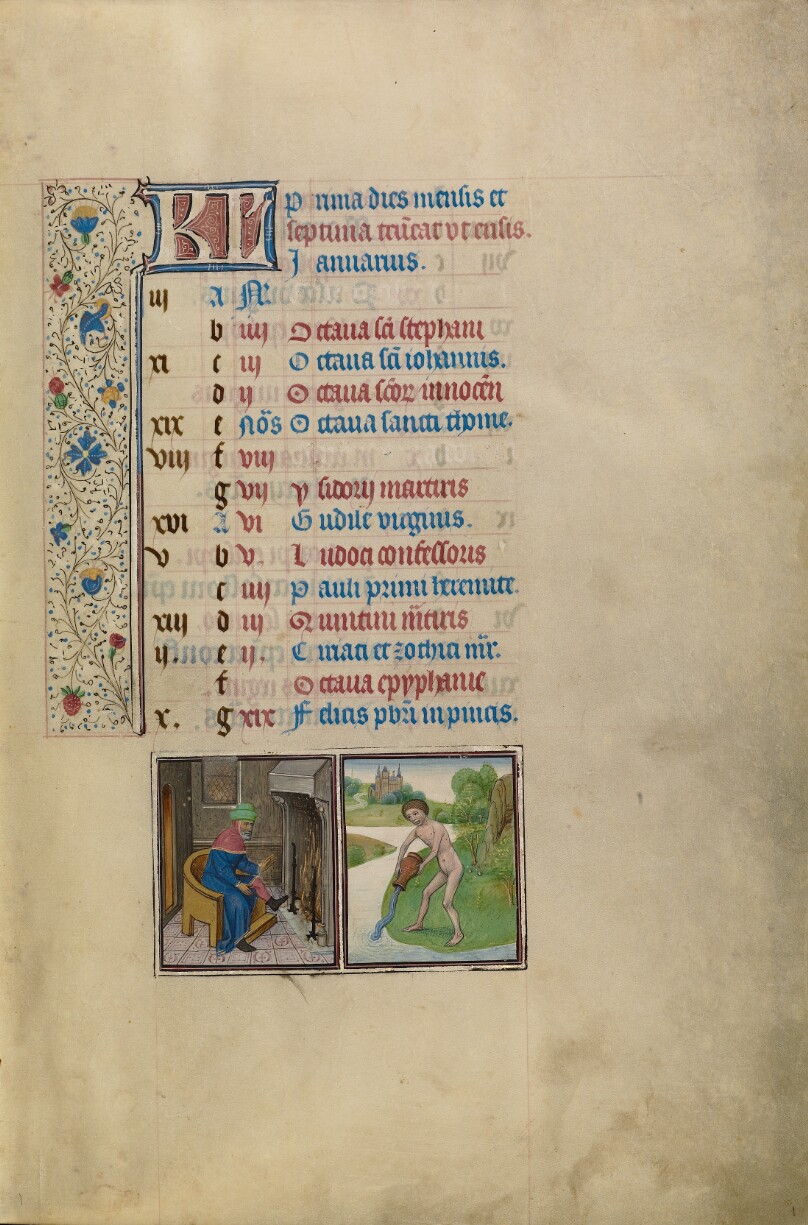 KL Prima dies mensis et
septima trūcat vt ensis.
Januarius.
iij A Nͬ.
b iiij Octaua sci stephani
xi c iij Octaua sci iohannis.
d ij Octaua scōꝝ innocēn
xix e Nōs Octaua sancti thome.
viij f viij
g vij ysidorij martiris
xvi A vi Gudile virginis.
v b v. Ludoci confessoris
c iiij Pauli primi heremite.
xiij d iij Quintini m̄tiris
ij. e ij. Ciriaci et zothici mr̄.
f Octaua epyphanie
x. g xix Felicis pbr̄i in pincis.